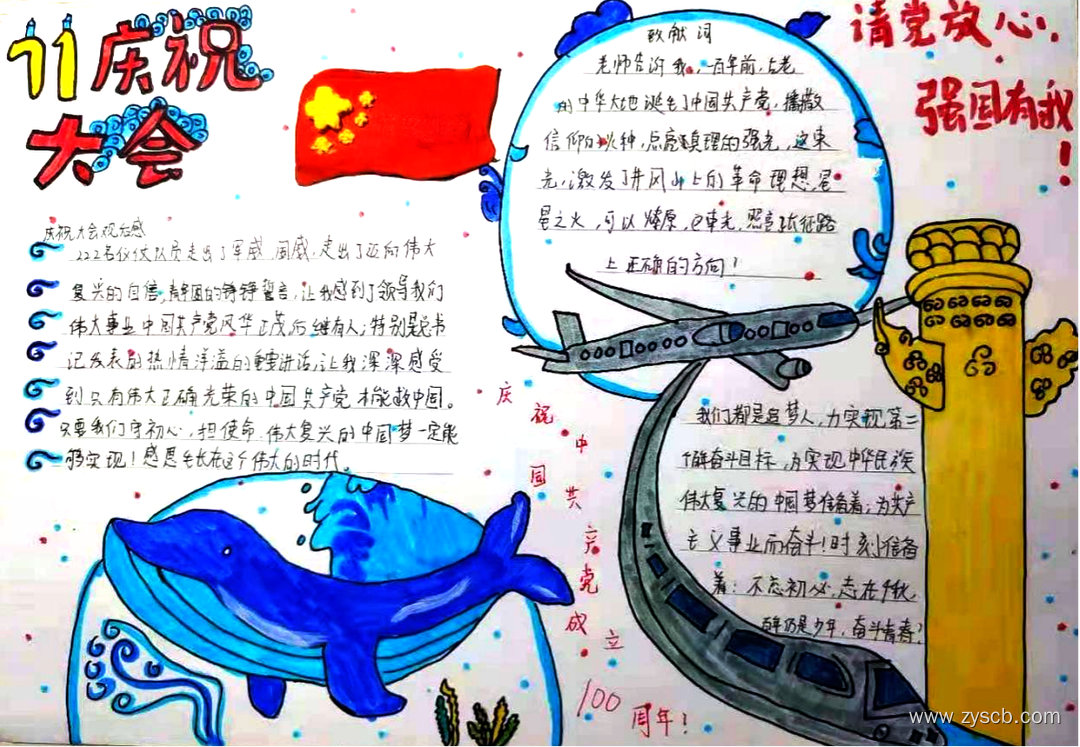 71庆祝
大会
庆祝大会观后感
222名仪仗队员走出了军威、国威,走出了迈向伟大
复兴的自信,青团的铮铮誓言,让我感到了领导我们
伟大事业中国共产党风华正茂后继有人;特别是总书
记发表的热情洋溢的重要讲话,让我深深感受
到只有伟大正确光荣的中国共产党才能救中国。
只要我们守初心,担使命,伟大复兴的中国梦一定能
够实现!感恩生长在这个伟大的时代。
致献词
老师告诉我,一百年前,古老
的中华大地诞生了中国共产党,播撒
信仰的火种,点亮真理的强光,这束
光,激发了井冈山上的革命理想,星
星之火,可以燎原,这束光,照亮了长征路
上正确的方向!
请党放心,
强国有我
!
庆祝中国共产党成立
100周年!
我们都是追梦人,为实现第二
个百年奋斗目标,为实现中华民族
伟大复兴的中国梦准备着;为共产
主义事业而奋斗!时刻准备
着:不忘初心,志在千秋,
百年仍是少年,奋斗青春?
www.zyscb.com